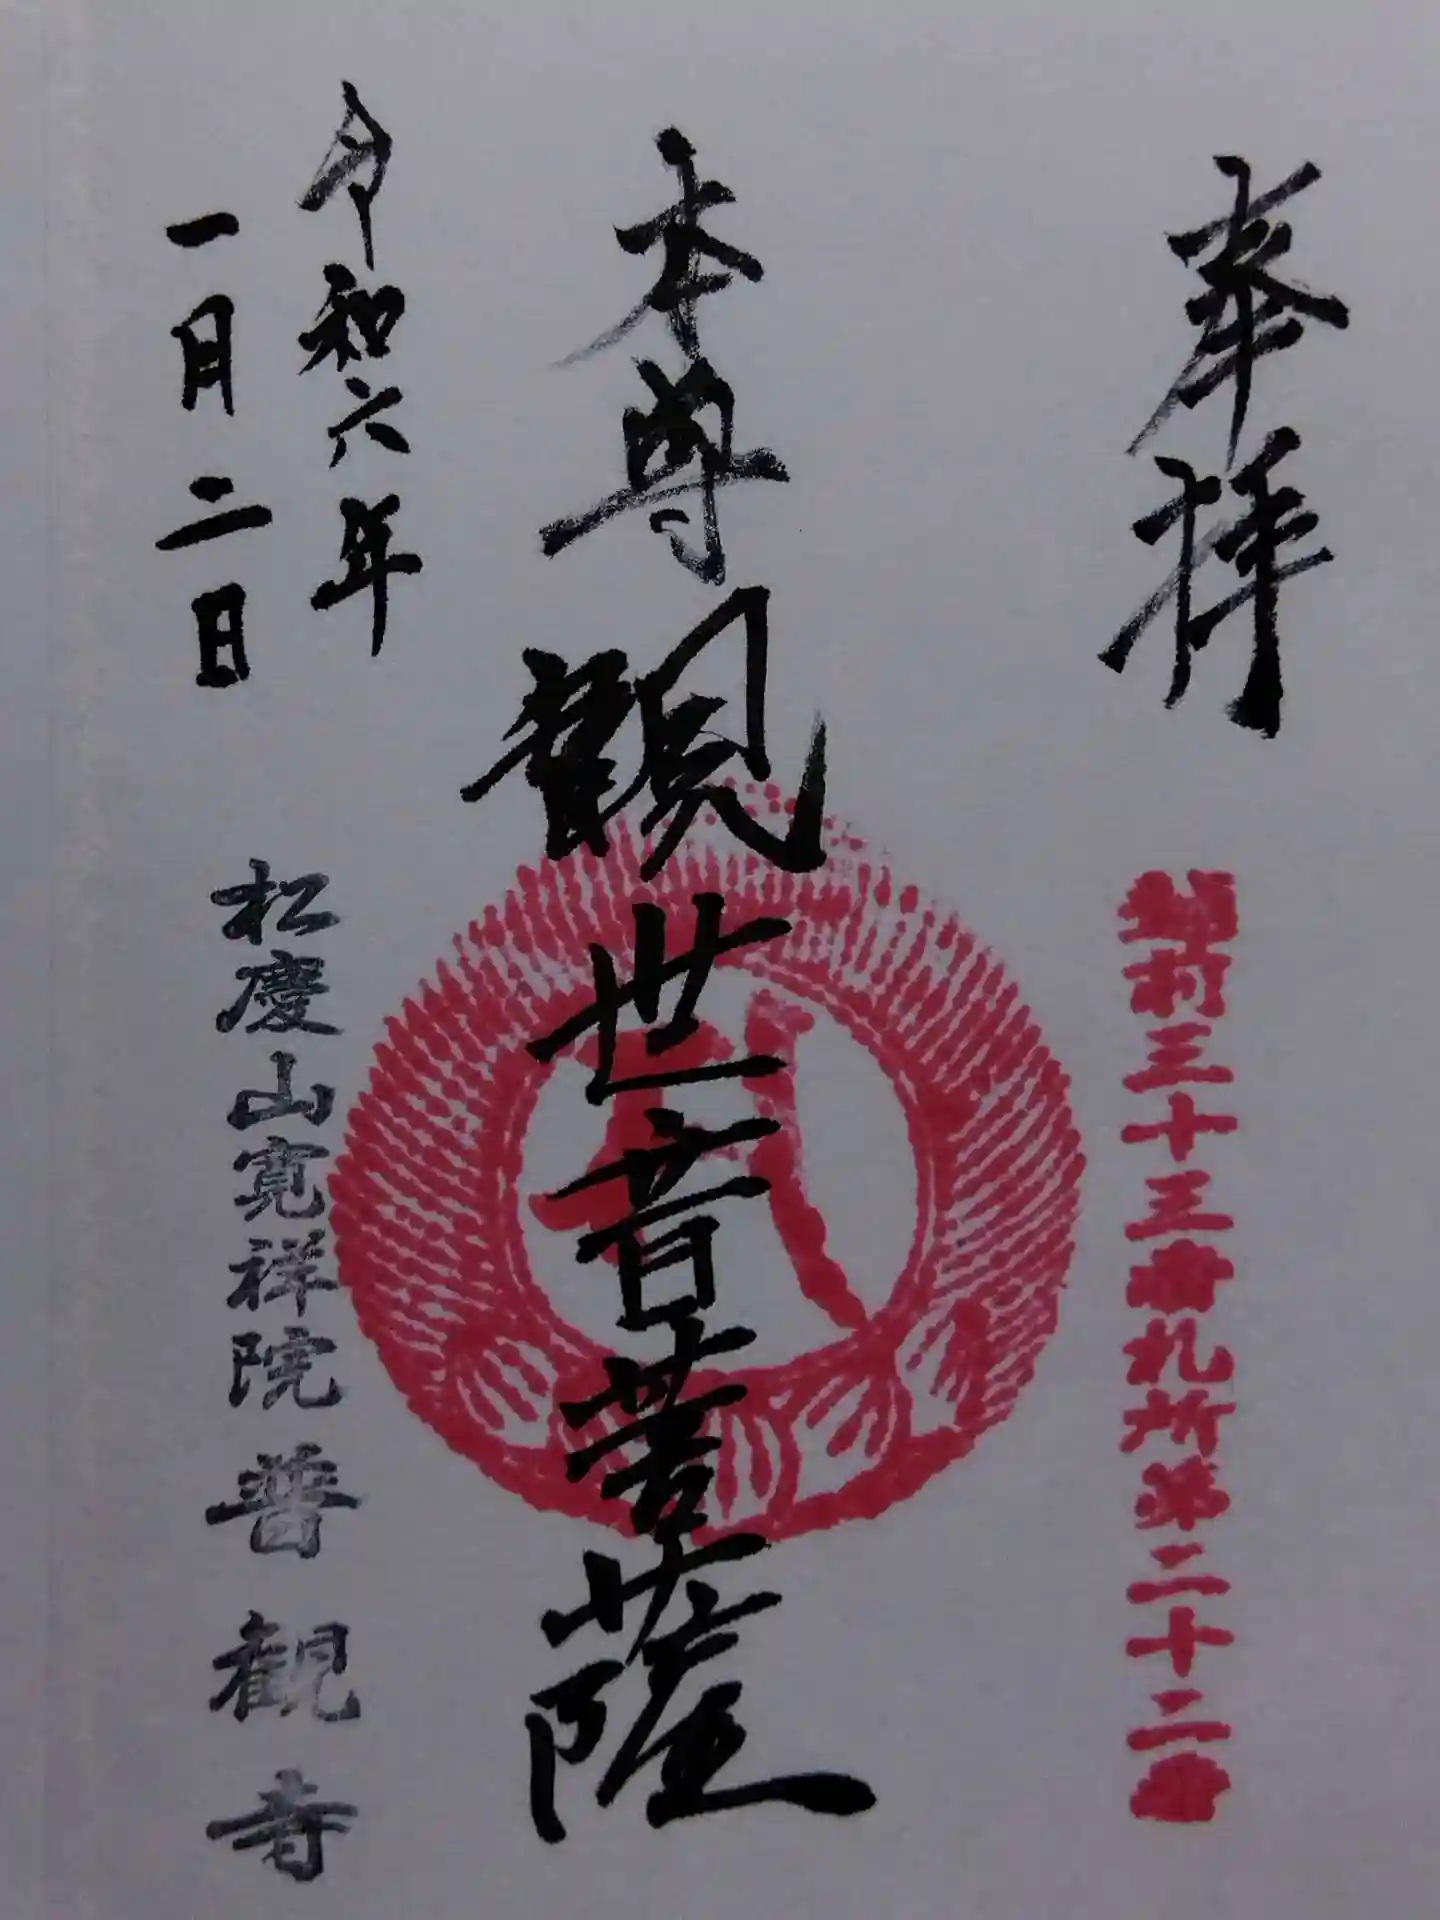 奉拝
三十三番札所第二十二番
本尊観世音菩薩
令和六年
一月二日
松慶山寛祥院普観寺